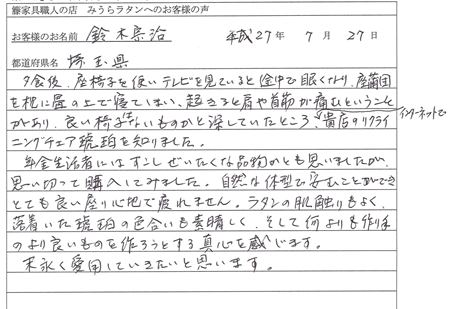 籐家具職人の店 みうらラタンへのお客様の声
お客様のお名前 鈴木宗治 平成27年 7月 27日
都道府県名 埼玉県
夕食後、座椅子を使いテレビを見ていると途中で眠くなり、座蒲団
を枕に畳の上で寝てしまい、起きると肩や首筋が痛むということ
があり、良い椅子はないものかと探していたところ、インターネットで貴店のリクライ
ニングチェア琥珀を知りました。
年金生活者にはすこしぜいたくな品物かとも思いましたが、
思い切って購入してみました。自然な体型で安むことができ
とても良い座り心地で疲れません。ラタンの肌触りもよく、
落着いた琥珀の色合いも素晴しく、そして何よりも作り手
のより良いものを作ろうとする真心を感じます。
末永く愛用していきたいと思います。